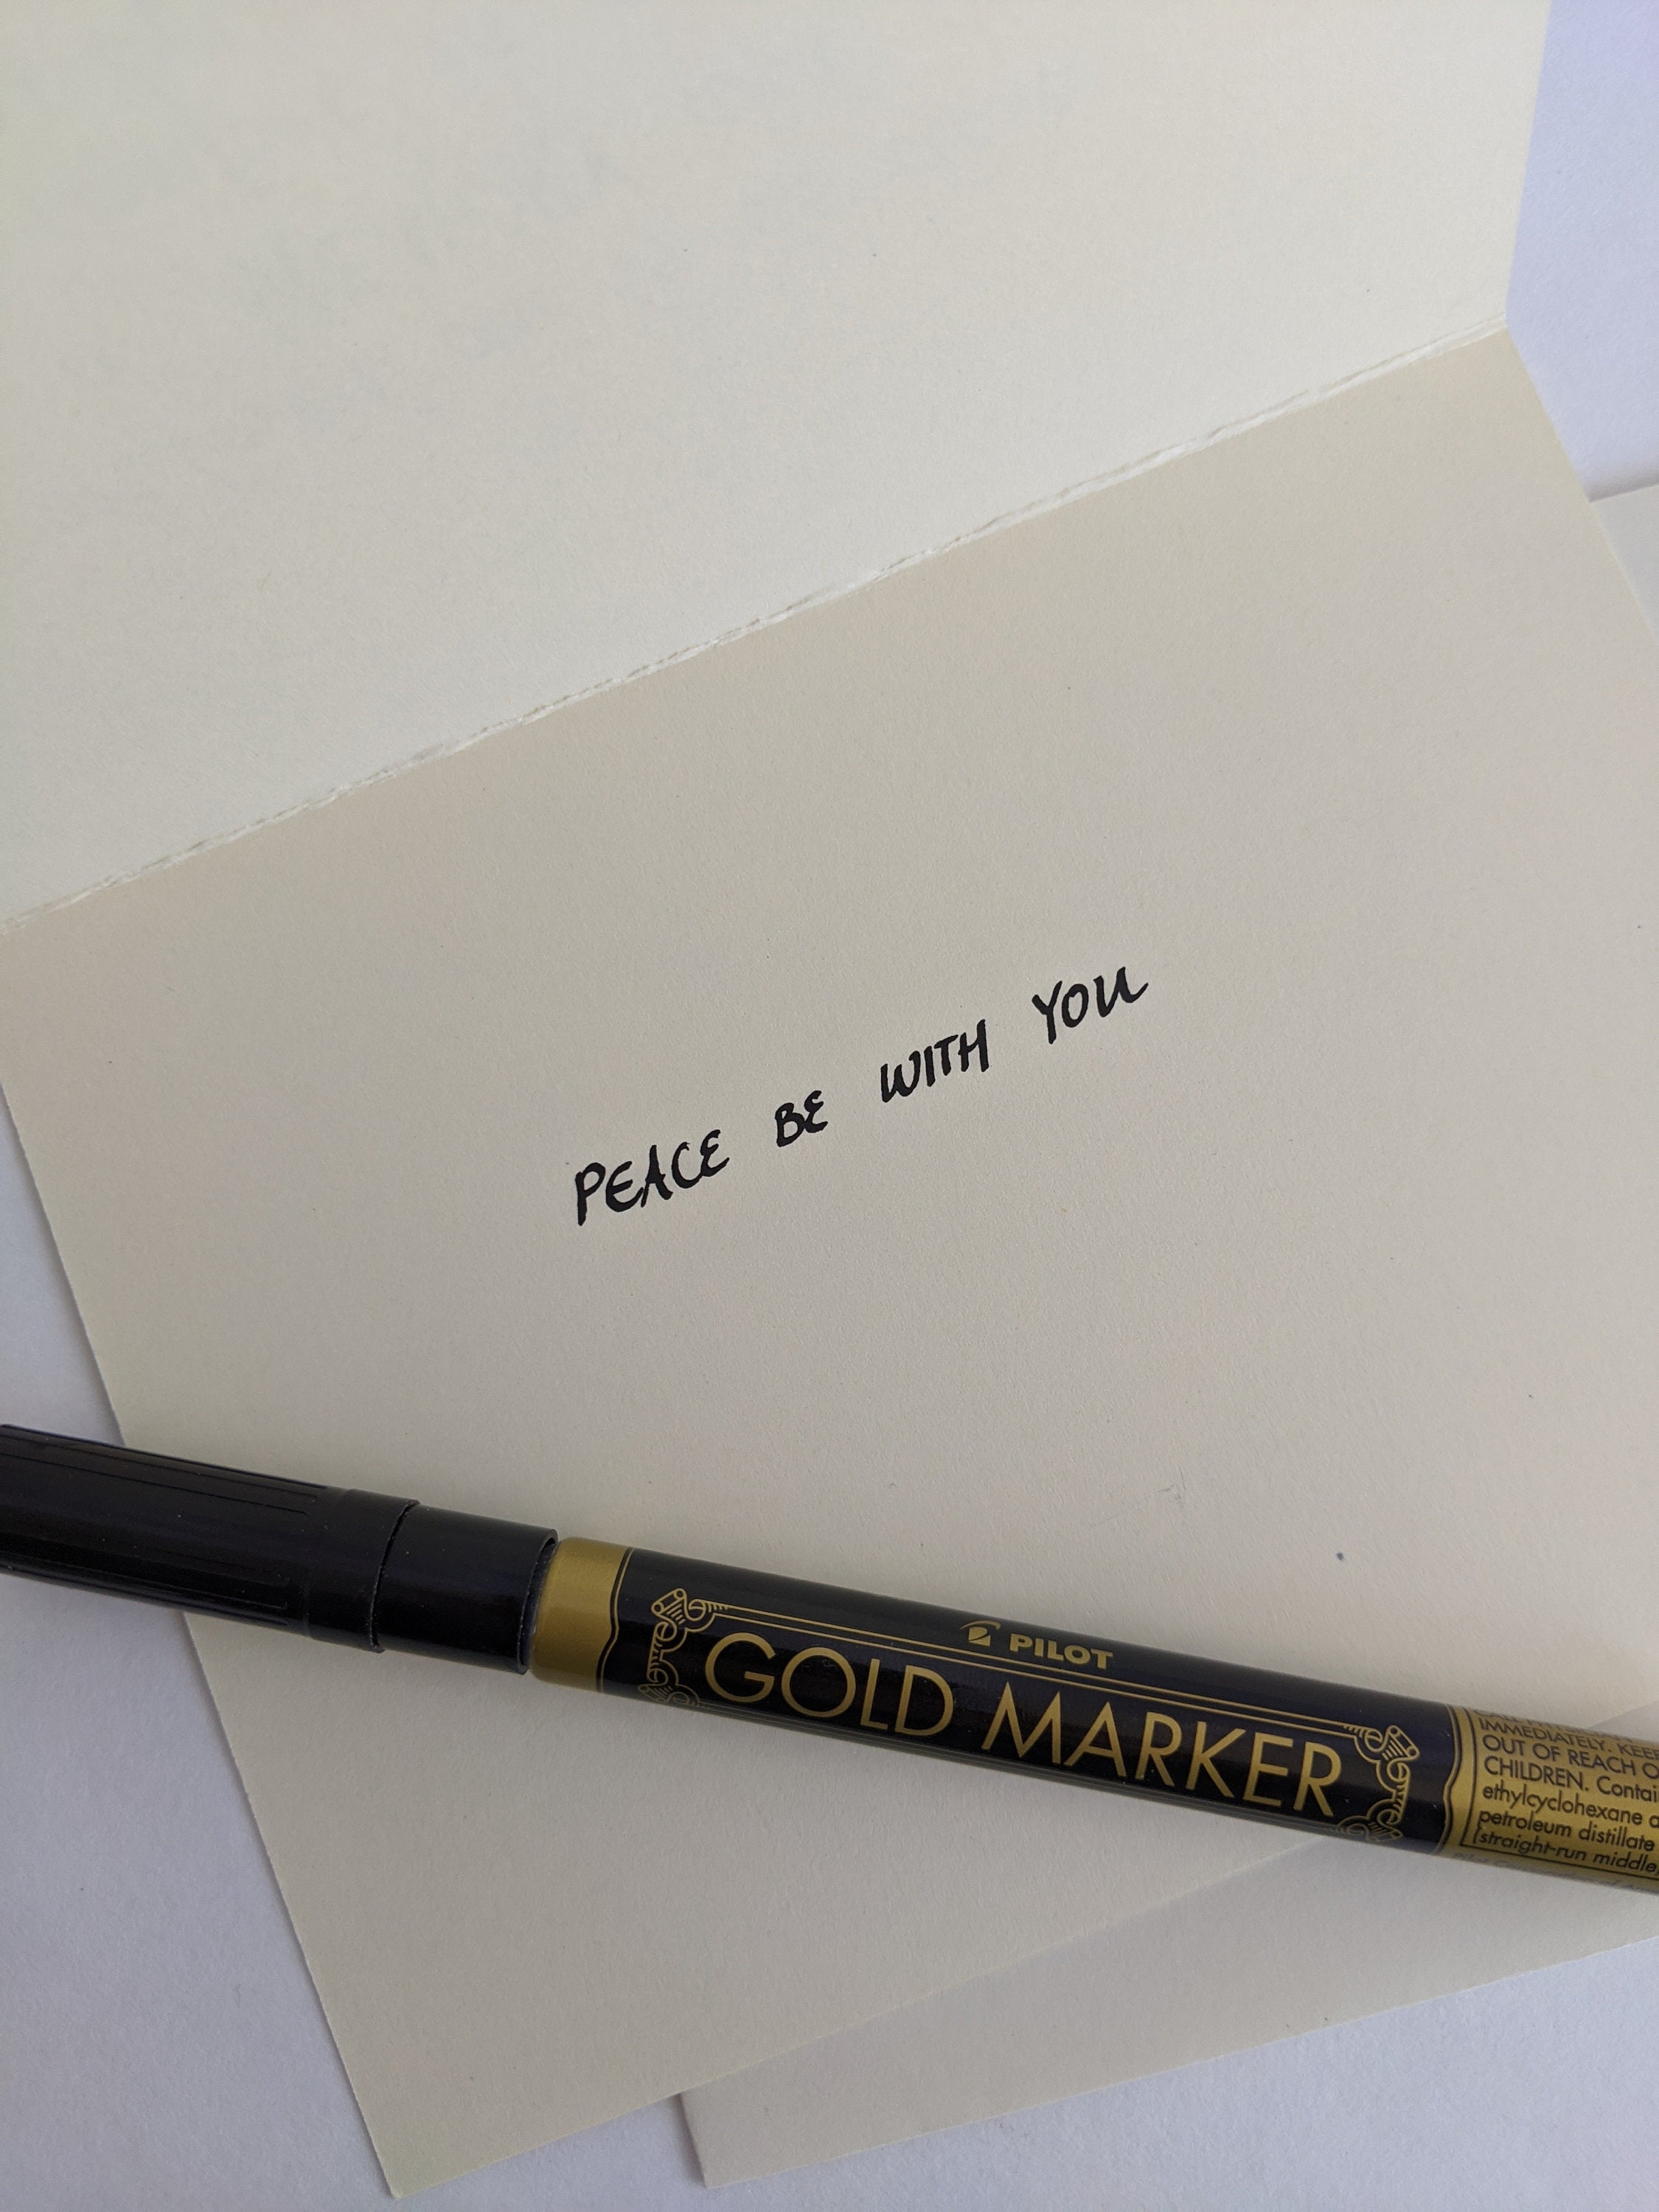 PEACE BE WITH YOU
PILOT
GOLD MARKER
IMMEDIATELY. KEEP
OUT OF REACH O
CHILDREN. Contai
ethylcyclohexane a
petroleum distillate
straight-run middle